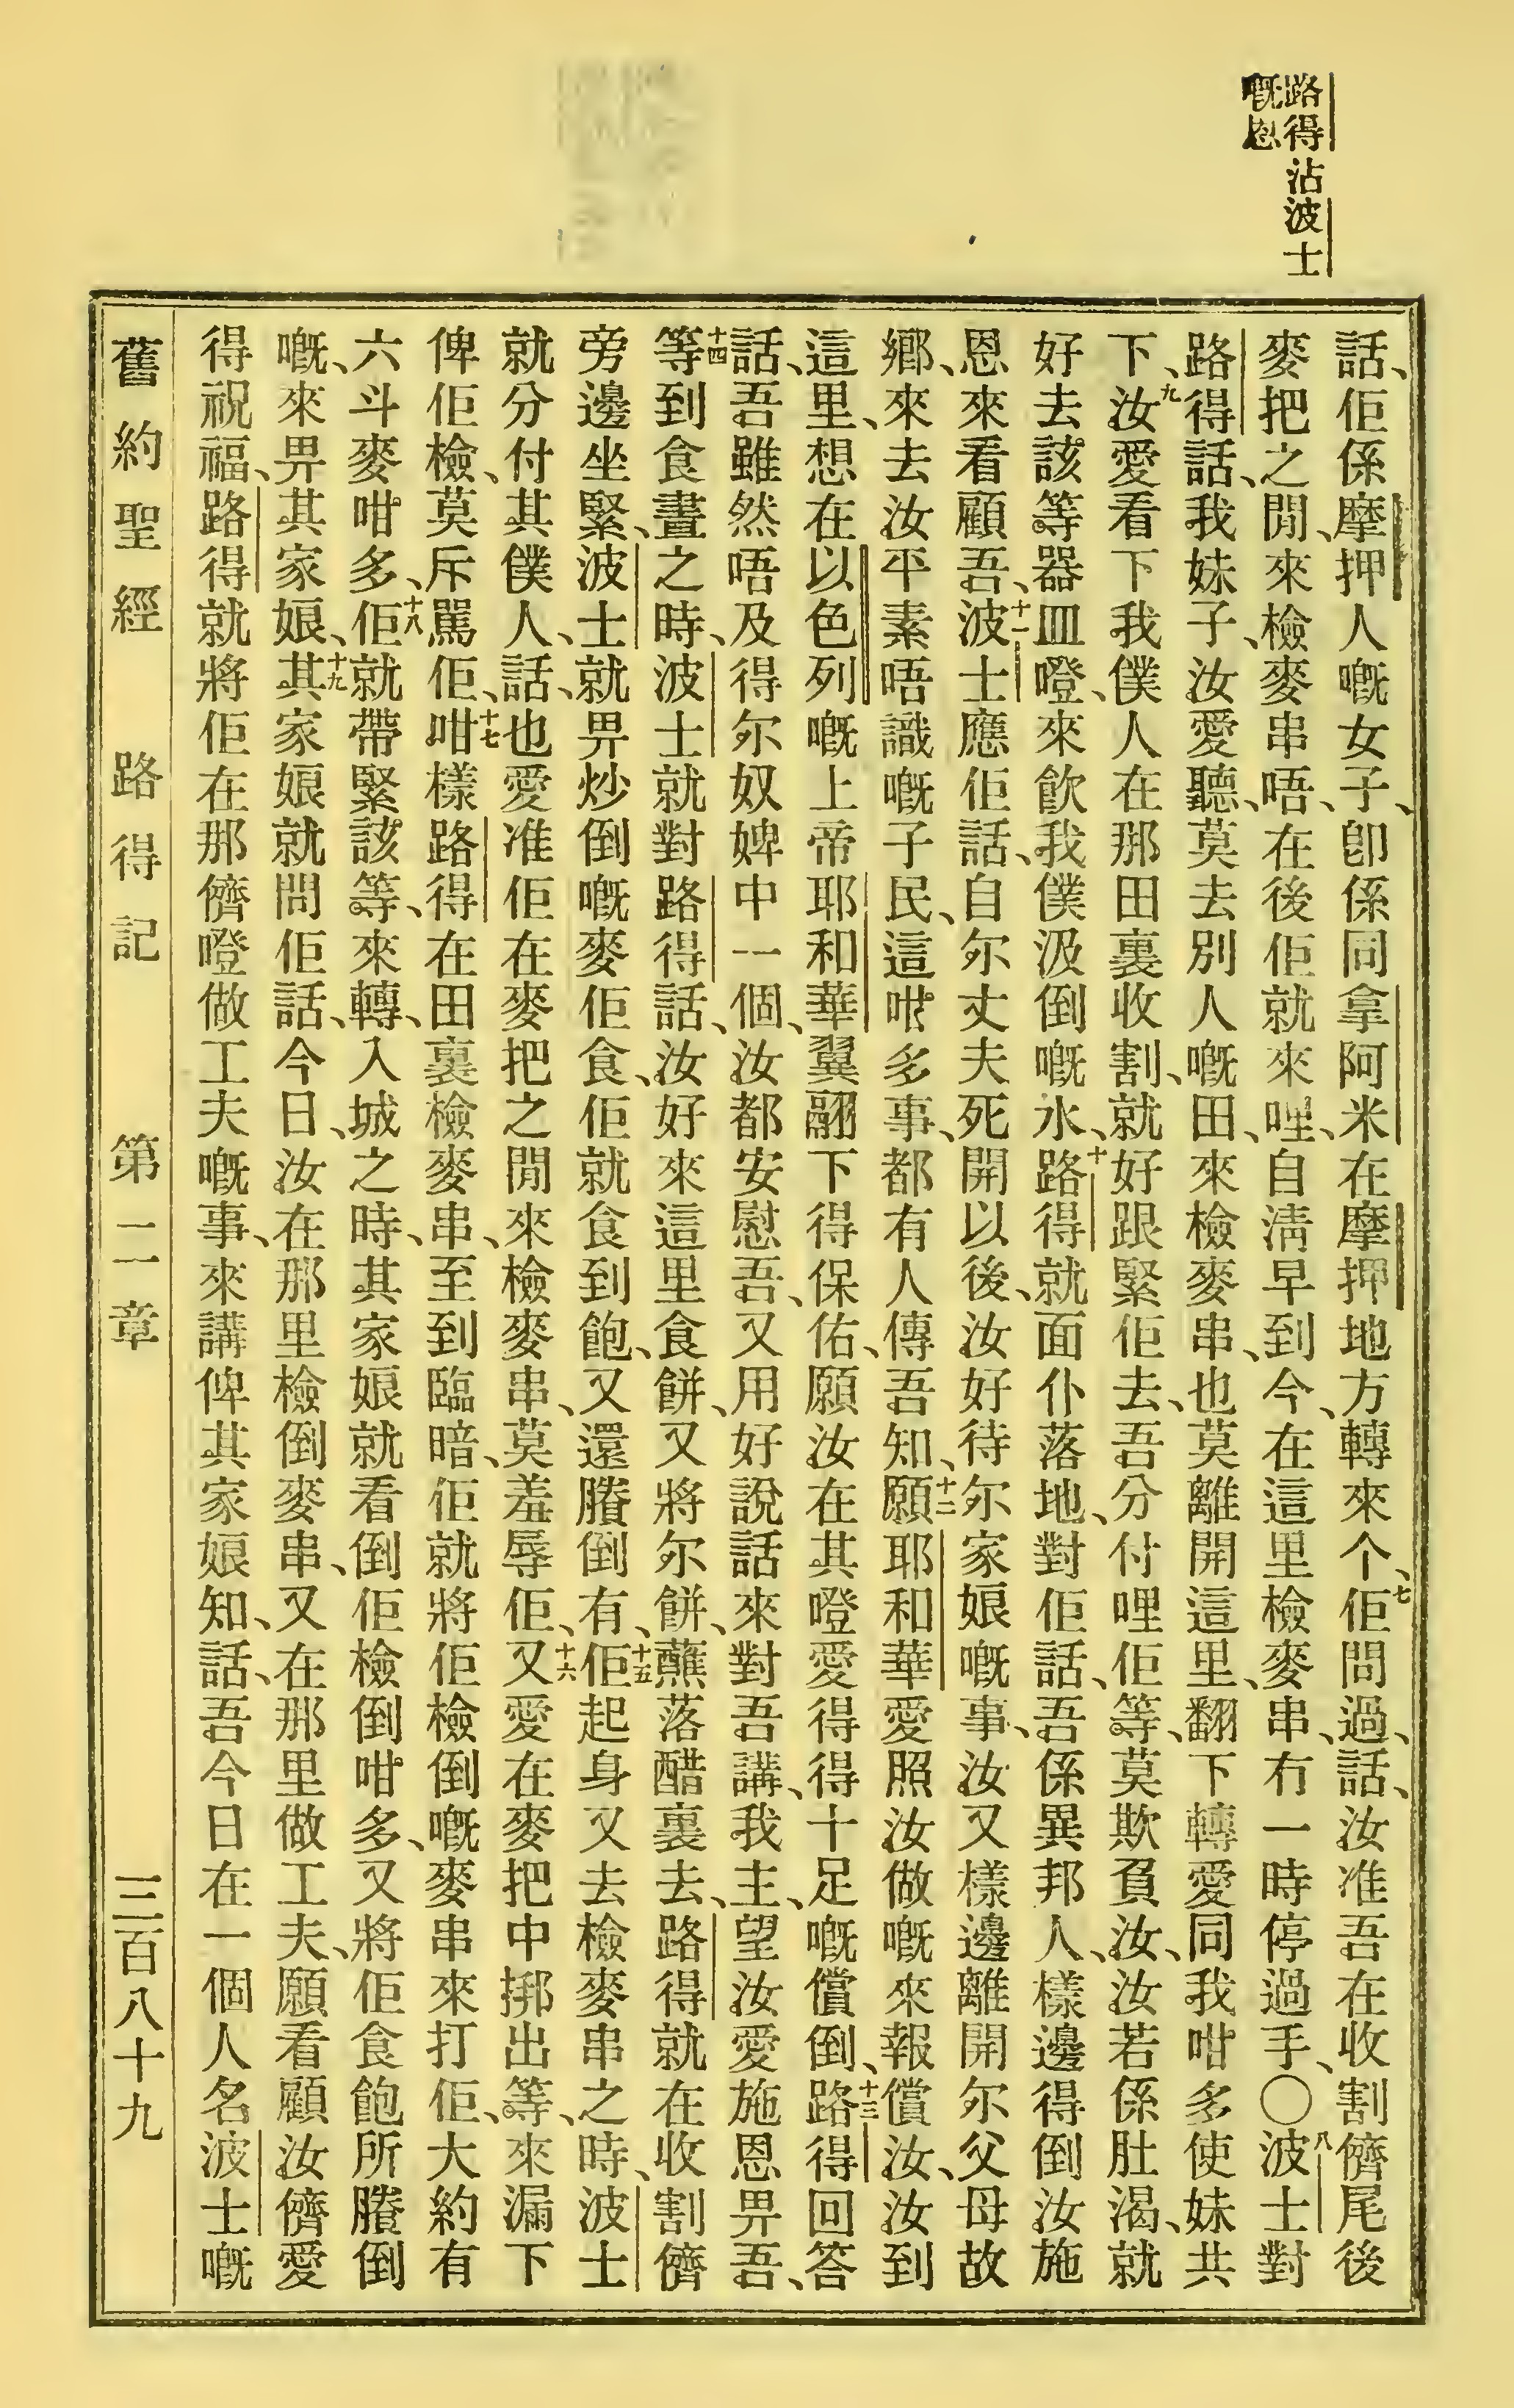 路得沾波士
嘅恩
話、佢係摩押人嘅女子、卽係同拿阿米在摩押地方轉來个、七佢問過、話、汝准吾在收割儕尾後
麥把之閒、來檢麥串唔、在後佢就來哩、自淸早到今、在這里檢麥串、冇一時停過手、〇八波士對
路得話、我妹子、汝愛聽、莫去別人嘅田、來檢麥串、也莫離開這里、翻下轉愛同我咁多使妹共
下、九汝愛看下我僕人在那田裏收割、就好跟緊佢去、吾分付哩佢等、莫欺負汝、汝若係肚渴、就
好去該等器皿噔、來飲我僕汲倒嘅水、十路得就面仆落地、對佢話、吾係異邦人、樣邊得倒汝施
恩來看顧吾、十一波士應佢話、自尔丈夫死開以後、汝好待尔家娘嘅事、汝又樣邊離開尔父母故
鄉、來去汝平素唔識嘅子民、這咁多事、都有人傳吾知、十二願耶和華愛照汝做嘅來報償汝、汝到
這里、想在以色列嘅上帝耶和華翼翮下得保佑、願汝在其噔愛得得十足嘅償倒、十三路得回答
話、吾雖然唔及得尔奴婢中一個、汝都安慰吾、又用好說話來對吾講、我主、望汝愛施恩畀吾、
十四等到食晝之時、波士就對路得話、汝好來這里食餅、又將尔餅、蘸落醋裏去、路得就在收割儕
旁邊坐緊、波士就畀炒倒嘅麥佢食、佢就食到飽、又還賸倒有、十五佢起身又去檢麥串之時、波士
就分付其僕人、話、也愛准佢在麥把之閒來檢麥串、莫羞辱佢、十六又愛在麥把中挷出等、來漏下
俾佢檢、莫斥罵佢、十七咁樣路得在田裏檢麥串、至到臨暗、佢就將佢檢倒嘅麥串來打佢、大約有
六斗麥咁多、十八佢就帶緊該等、來轉、入城之時、其家娘就看倒佢檢倒咁多、又將佢食飽所賸倒
嘅、來畀其家娘、十九其家娘就問佢話、今日、汝在那里檢倒麥串、又在那里做工夫、願看顧汝儕愛
得祝福、路得就將佢在那儕噔做工夫嘅事、來講俾其家娘知、話、吾今日在一個人名波士嘅
舊約聖經　路得記　第二章　三百八十九